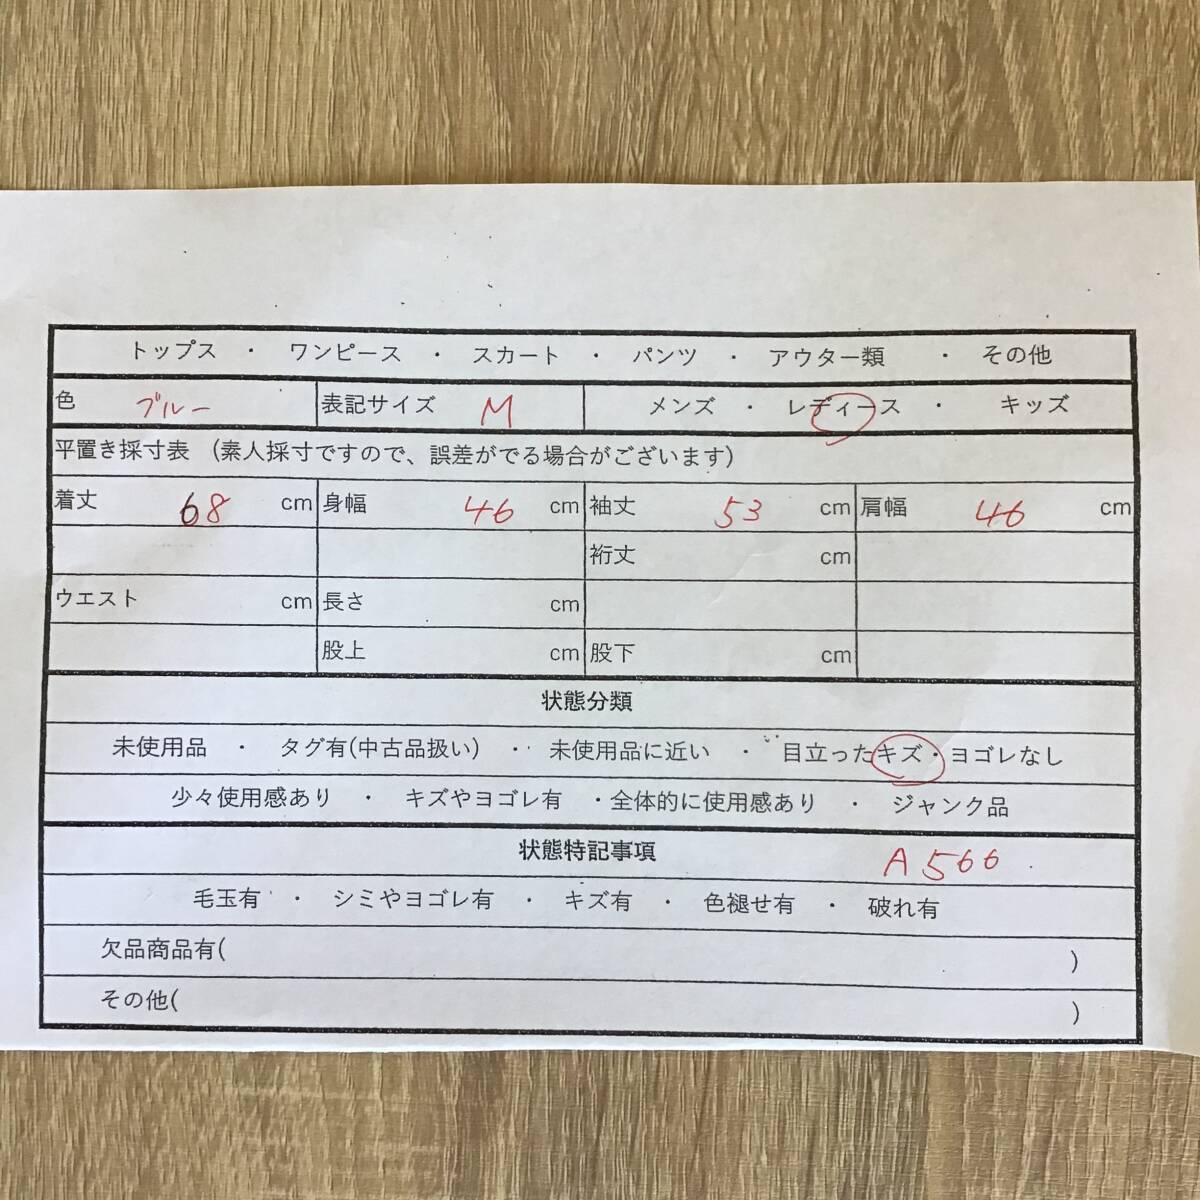 トップス ・ ワンピース ・ スカート ・ パンツ ・ アウター類 ・ その他
色 ブルー 表記サイズ M メンズ ・ レディース ・ キッズ
平置き採寸表 (素人採寸ですので、誤差がでる場合がございます)
着丈 68 cm 身幅 46 cm 袖丈 53 cm 肩幅 46 cm
裄丈 cm
ウエスト cm 長さ cm
股上 cm 股下 cm
状態分類
未使用品 ・ タグ有(中古品扱い) ・ 未使用品に近い ・ 目立ったキズ・ヨゴレなし
少々使用感あり ・ キズやヨゴレ有 ・全体的に使用感あり ・ ジャンク品
状態特記事項 A566
毛玉有 ・ シミやヨゴレ有 ・ キズ有 ・ 色褪せ有 ・ 破れ有
欠品商品有( )
その他( )